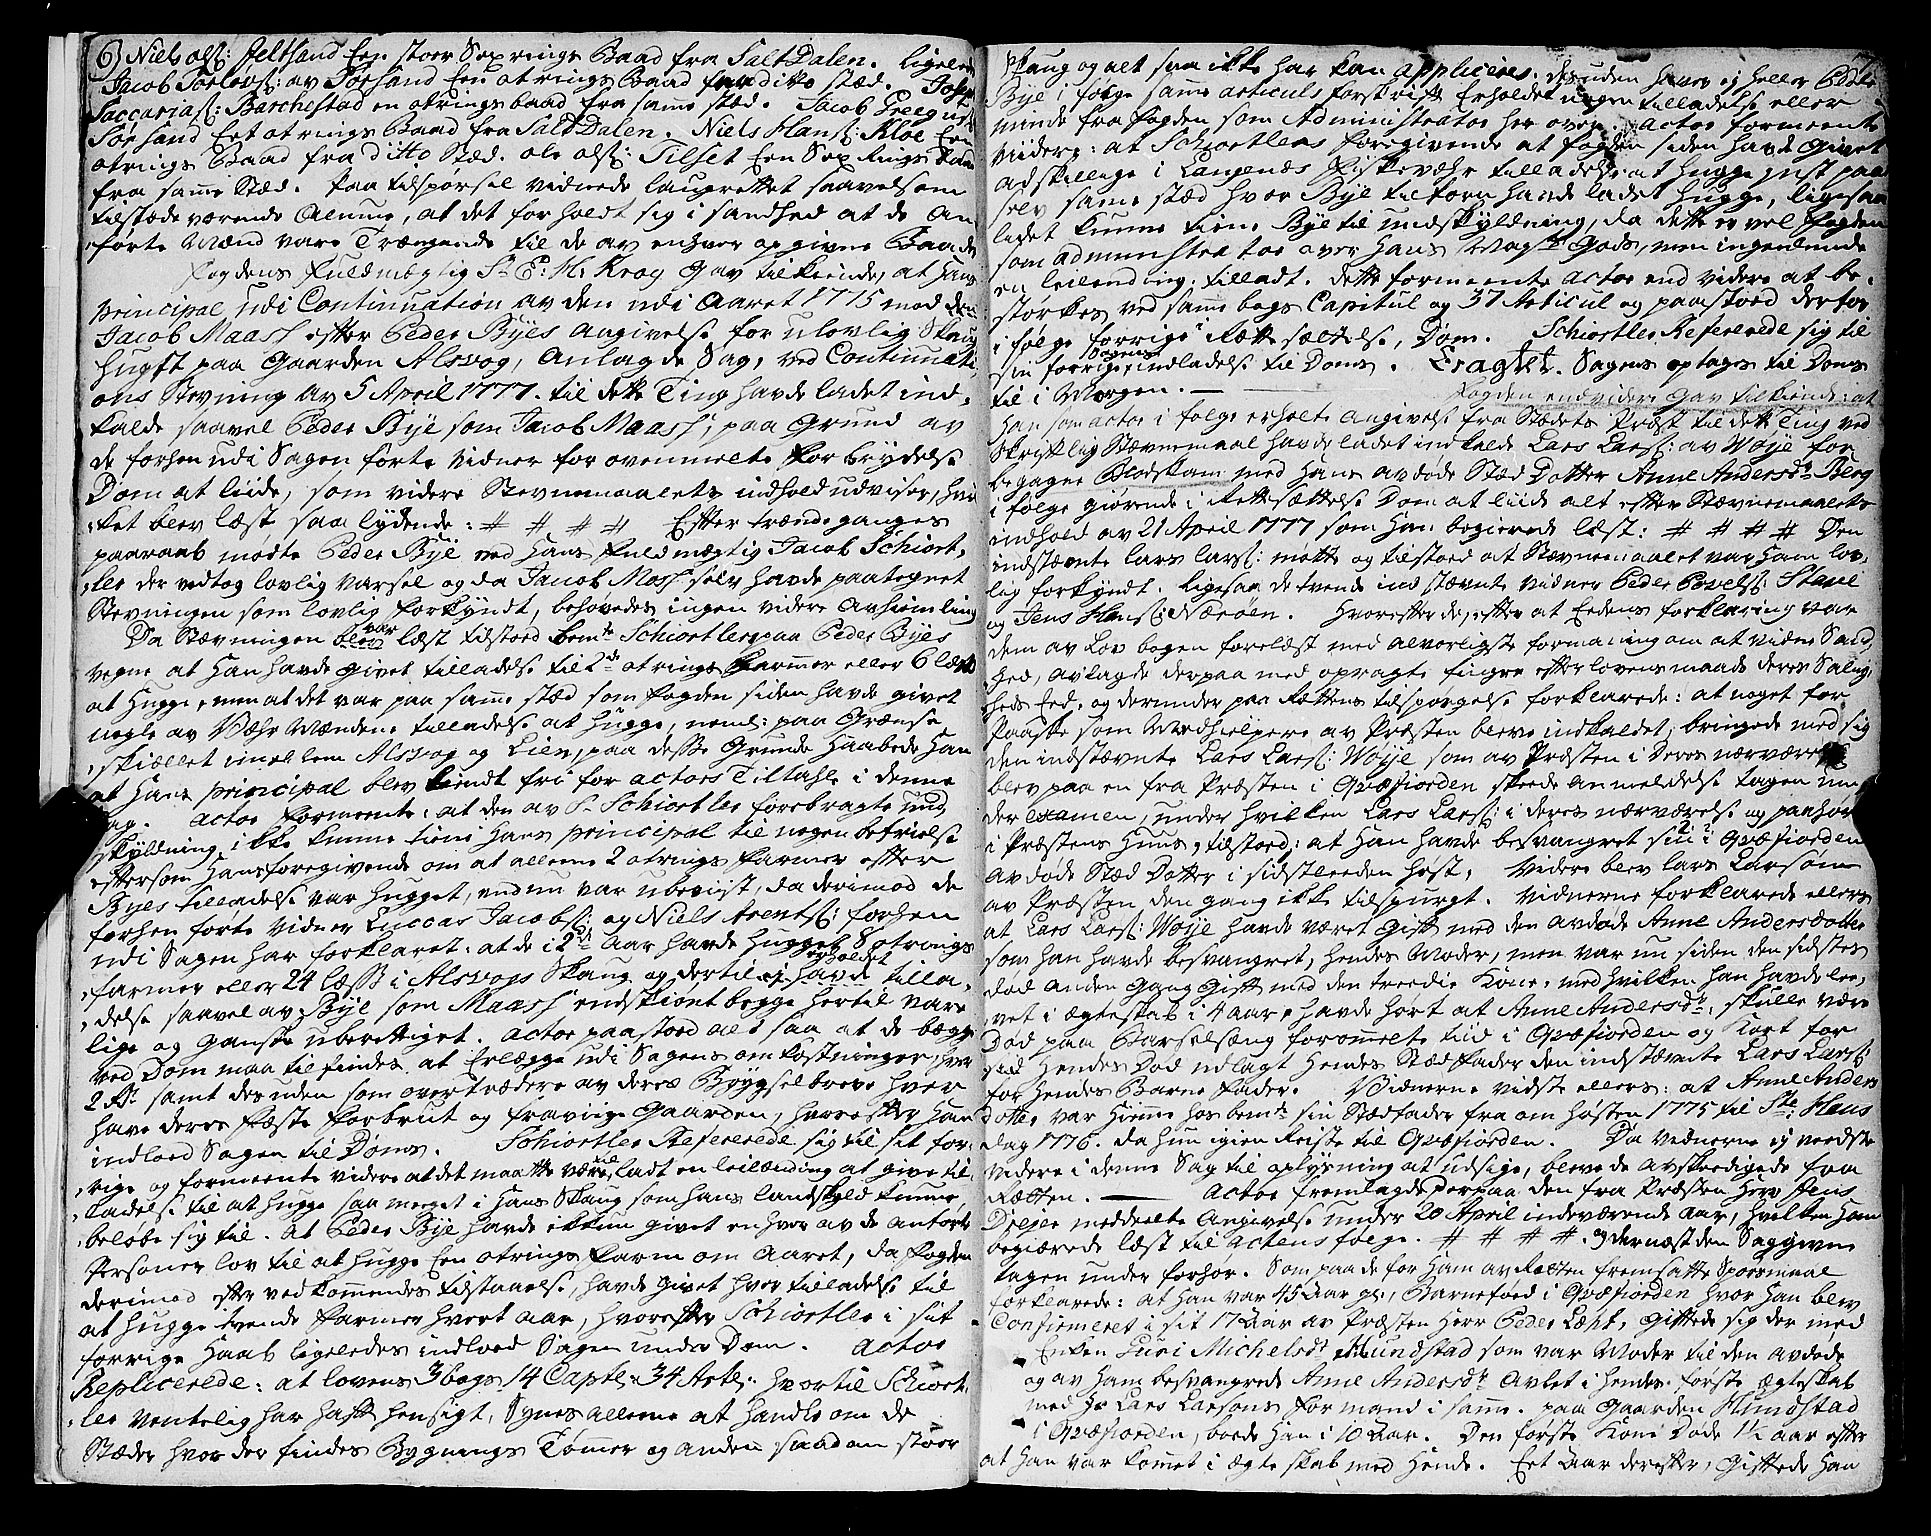 6) Niels ols: Jeltsand Een stoer Sexrings Baad fra SaltDalen. ligeled
Jacob Torlevs: av Torsand Een otrings Baad fra ditto stæd.
Saccarias: Barchestad en otrings baad fra samme stæd. Jacob Greegus:
Sørsand Eet otrings Baad fra SaltDalen. Niels Hans: Kloe Een
otrings Baad fra ditto Stæd. ole ols: Tilset Een Sex Rings Baad
fra samme Stæd. Paa tilspørsel vidnede laugrettet saavelsom
tilstædeværende Almue, at det forholdt sig i sandhed at de An
førte Mænd vare Trængende til de av enhver opgivne Baade
Fogdens Fuldmægtig Sr P: M: Krog Gav tilkiende, at Hans
principal, udi Continuation av den udi Aaret 1775 mod den
Jacob Maash efter Peder Byes angivelse for ulovlig Skoug
hugst paa Gaarden Alsvog, Anlagde Sag, ved Continuati
ons Stevning av 5 April 1777. til dette Ting havde ladet ind,
kalde saavel Peder Bye som Jacob Maash, paa Grund av
de forhen udi Sagen førte vidner for ovenmelte Forbrydelse
Dom at liide, som videre Stevnemaalets indhold udviser, hvil
ket blev læst saa lydende: # # # # Efter trende ganges
paaraab mødte Peder Bye ved Hans Fuldmægtig Jacob Schiort,
ler der vedtog lovlig varsel og da Jacob Mash selv havde paategnet
Stevningen som lovlig forkyndt, behøvedes ingen videre avhiemling
Da Stævningen var læst tilstoed bemte Schiortler paa Peder Byes
vegne at Han havde givet tilladelse til 2de otrings Farmer eller 6 læs
at Hugge, men at det var paa samme stæd som fogden siden havde givet
nogle av Væhr Mændene tilladelse at hugge, neml: paa Grænse
skiællet imellem Alsvog og Lien, paa desse Grunde Haabede Han
at Hans principal blev kiendt fri for actors Tiltahle i denne
Sag. Actor formeente: at den av Sr Schiortler forebragte und
skyldning ikke kunne tiene Hans principal til nogen befrielse
eftersom Hans foregivende om at allene 2 otrings Farmer efter
Byes tilladelse var hugget, endnu var ubeviist, da derimod de
forhen førte vidner Luccas Jacobs: og Niels Arents: forhen
udi Sagen har forklaret: at de i 2de aar havde Hugget 8 otrings
farmer eller 24 læss i Alsvogs Skoug og dertil erholdet tilla,
delse saavel av Bye som Maash endskiønt begge hertil vare
lige og ganske uberettiget. Actor paastoed altsaa at de begge
ved Dom maa tilfindes at Erlægge udi Sagens omkostninger, hver
2 Rd samt desuden som overtrædere av deres Bøygselbreve hver
have deres Fæste forbrut og fravige Gaarden, hvorefter Han
indlod Sagen til Doms. Schiortler Refererede sig til sit for,
rige og formeente videre at det maatte være tilladt en leilænding at give til
ladelse til at hugge saa meget i Hans Skoug som hans landskyld kunne
beløbe sig til. at Peder Bye havde ikkun givet enhver av de anførte
Personer lov til at hugge Een otrings Farm om Aaret, da Fogden
derimod efter vedkommendes tilstaaelse, havde givet hver tilladelse til
at hugge tvende Farmer hvert aar, hvorefter Schiortler i sit
forrige Haab ligeledes indlod Sagen under Dom. Actor
Replicerede: at lovens 3 bogs 14 Captl: 34 Artl: hvortil Schiort,
ler ventelig har hafft hensigt, Synes allene at handle om de
Stæder hvor der findes Bygnings Tømmer og anden saadan stoer
Skoug og alt saa ikke har kan appliceres. desuden haver ej heller Peder
Bye i følge samme articuls forskrift Erholdet nogen tilladelse eller
minde fra fogden som Administrator her over. Actor formeente
viidere: at Schiortlers foregivende at fogden siden havde Givet
adskillige i Langenæs Fiskevæhr tilladelse at hugge just paa
selv samme stæd hvor Bye tilforn havde ladet hugge, ligesaa
lidet kunne tiene Bye til undskyldning, da dette er vel fogden
som administrator over Hans Gods, men ingenlunde
en leilending tilladt. Dette formeente actor end videre at be,
størkes ved samme bogs Capitul og 37 Articul og paastoed derfor
i følge forrige i Rette sættelse, Dom. Schiortler Refererede sig til
sin forrige Sagens indladelse til Doms. Eragtet. Sagen optages til Doms
til i Morgen. —
Fogden endvidere Gav tilkiende: at
Han som actor i følge erholte Angivelse fra Stædets Præst til dette Ting ved
Skriftlig Stævnemaal havde ladet indkalde Lars Lars: av Woije for
begagne Blodskam med Hans avdøde Stæd Dotter Anne Andersdr Berg
i følge giørende i Rettesættelse Dom at liide alt efter Stævnemaalets
indhold av 21 April 1777 som Han begierede læst: # # # # Den
indstævnte Lars Lars: mødte og tilstoed at Stævnemaalet var Ham lov,
lig forkyndt. ligesaa de tvende indstævnte vidner Peder Povels: Stave
og Jens Hans: Næroen. Hvorefter de, efter at Eedens forklaring var
dem av Lov bogen forelæst med alvorligste formaning om at vidne Sand,
hed, avlagde derpaa med opragte fingre efter lovens maade deres Salig,
heds Eed. og derunder paa Rettens tilspørgelse forklarede: at noget for
Paaske som Medhielpere av Præsten bleve indkaldet, bringede med sig
den indstævnte Lars Lars: Woije som av Præsten i Deres nærværelse
blev paa en fra Præsten i Qvæfiorden skeede anmeldelse tagen un,
der examen, under hvilken Lars Lars: i deres nærværelse og paahør
i Præstens Huus, tilstoed: at Han havde besvangret sin i Qvæfiorden
avdøde Stæd Dotter i sidstleeden høst, Videre blev lars Larsøn
av Præsten den gang ikke tilspurgt. Vidnerne forklarede ellers
at Lars Lars: Woije havde været Gift med den avdøde Anne Andersdotter
som han havde besvangret, hendes Moder, men var nu siden den sidstes
død anden Gang Gift med den tredie Kone, med hvilken han havde lee,
vet i ægteskab i 4 aar, havde hørt at Anne Andersdr, skulle være
Død paa Barselsæng forommelte tiid i Qvæfiorden og Kort for
sin Hendes Død udlagt Hendes Stædfader den indstævnte Lars Lars:
for Hendes Barne Fader. Vidnerne vidste ellers: at Anne Anders
dotter var Hiemme hos bemte sin Stædfader fra om høsten 1775 til Ste Hans
Dag 1776. da hun igien Reiste til Qvæfiorden. Da vidnerne ej veedste
videre i denne Sag til oplysning at udsige, bleve de avskeedigede fra
Rætten. — Actor fremlagde derpaa den fra Præsten Herr Jens
Drejer meddeelte Angivelse under 20 April indeværende aar, hvilken Han
begiærede læst til actens følge. # # # #. og dernæst den Saggivne
tagen under forhør. Som paa de for Ham av Retten fremsatte Spørsmaal
forklarede: at Han var 45 Aar gl:, Barneføed i Qvæfiorden hvor Han blev
Confirmeret i sit 17 Aar av Præsten Herr Peder Læht, Giftede sig der med
Enken Guri Michelsdr Hundstad som var Moder til den avdøde
og av Ham besvangrede Anne Andersdr Avlet i hendes første ægteskab
med Lars Larsøns Formand i samme. paa Gaarden Hundstad
i Qvæfiorden, boede Han i 10 Aar. Den første Kone Døde 1½ aar efter
at Han var kommet i ægteskab med Hende. Eet Aar derefter, Giftede Han